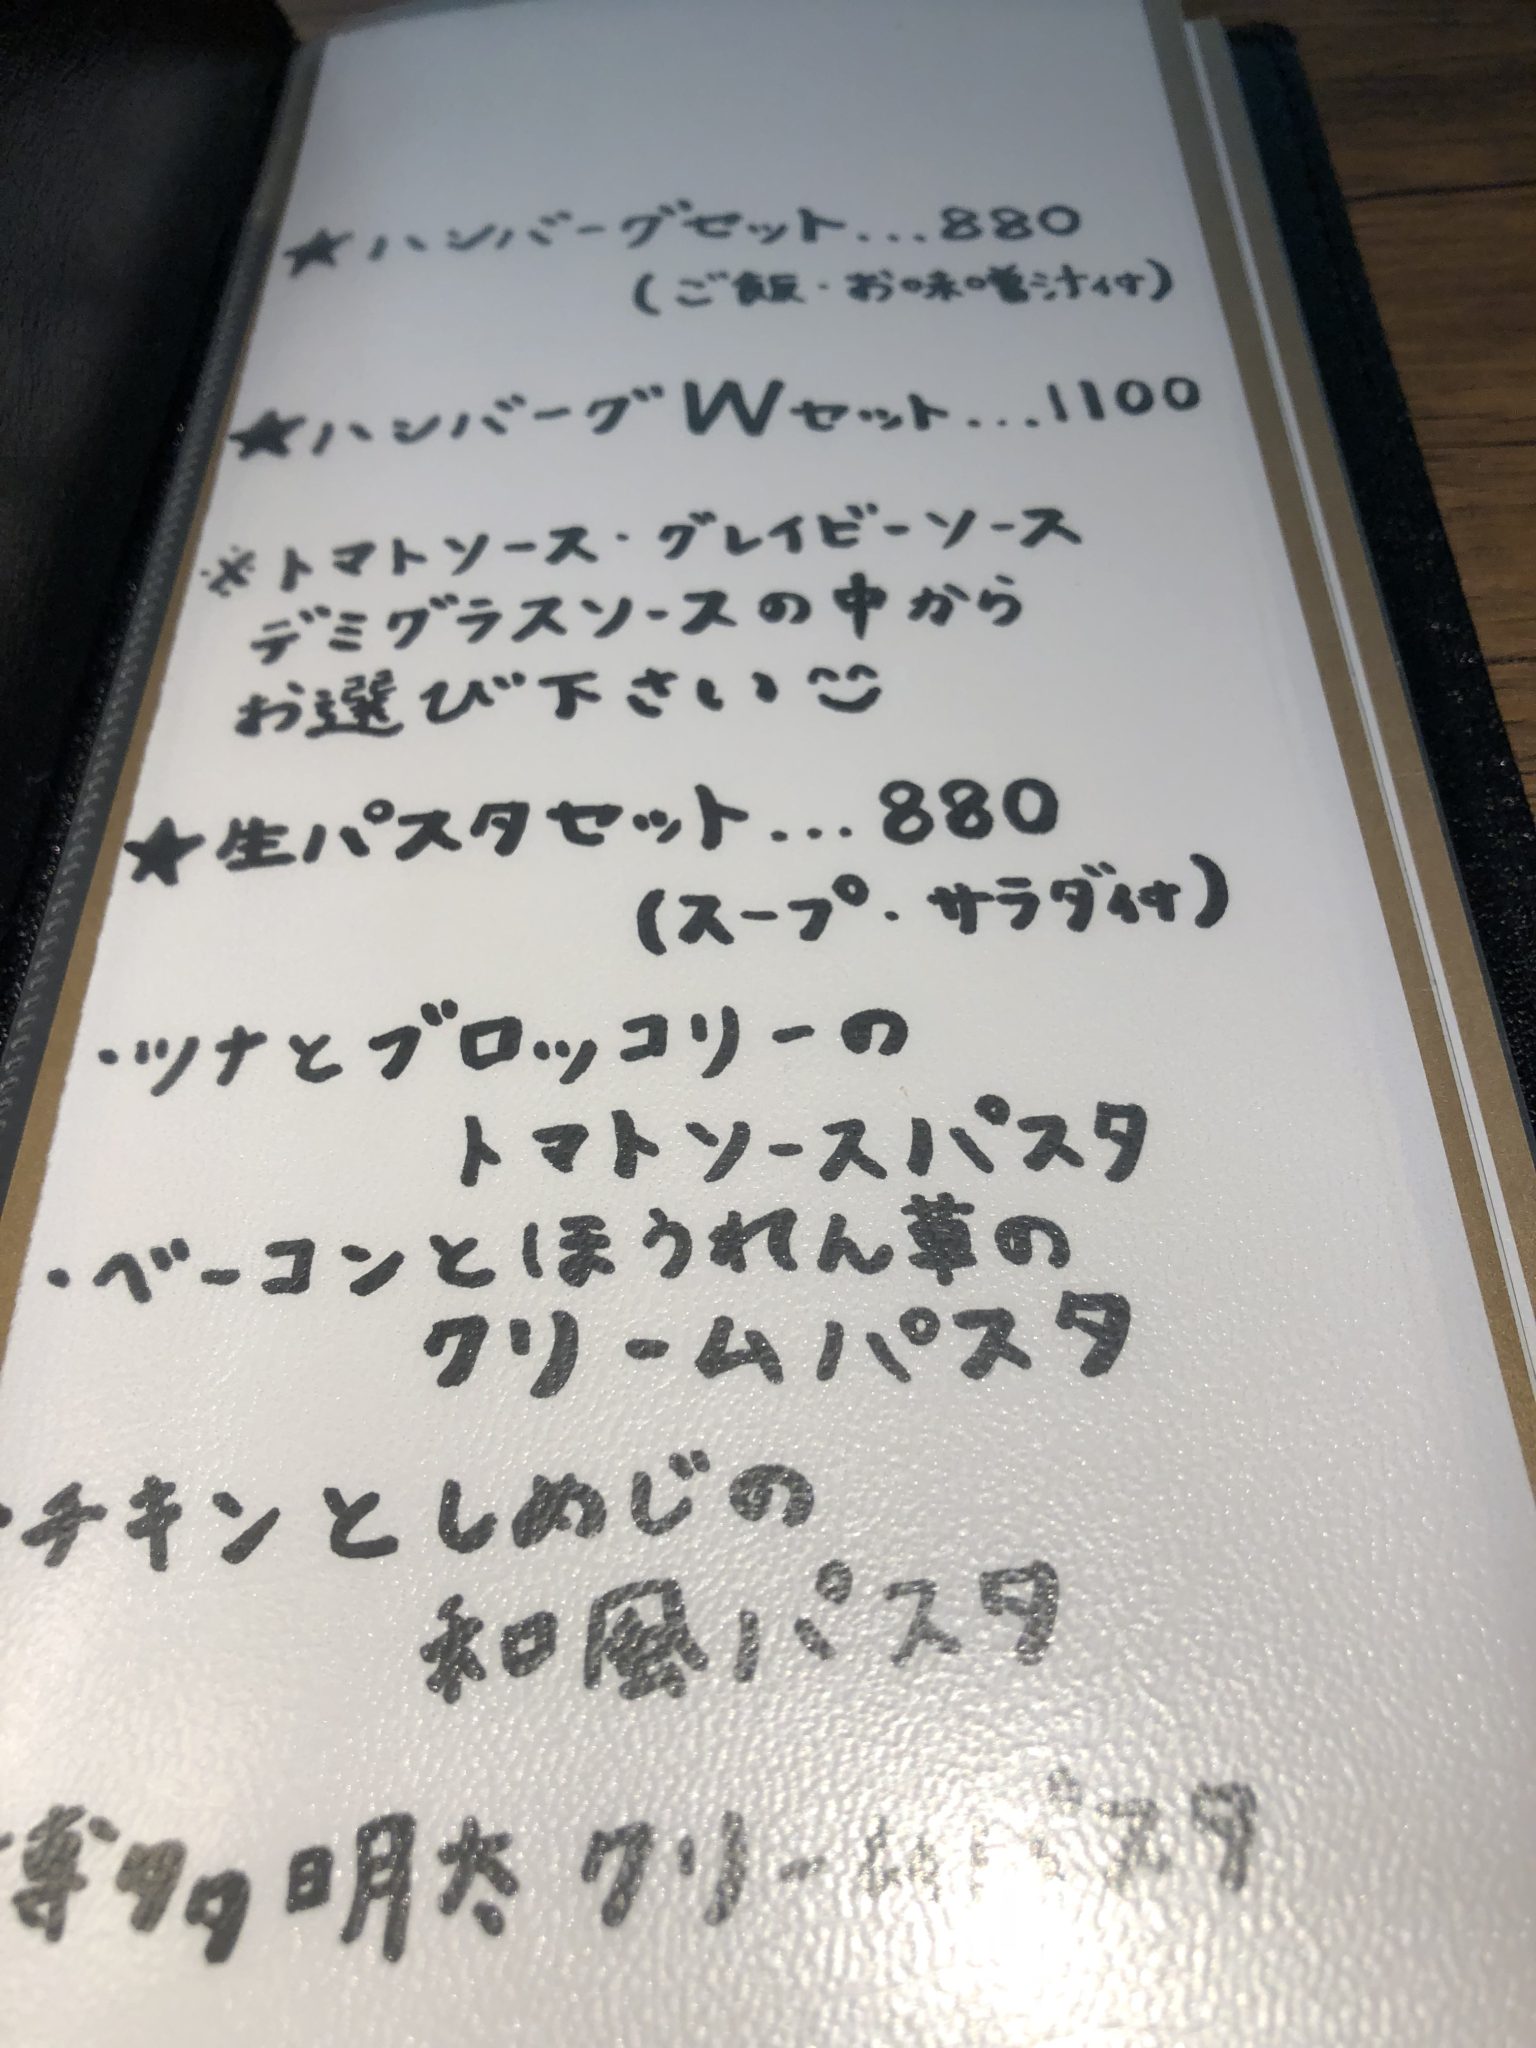 ★ハンバーグセット...880
(ご飯・お味噌汁付)
★ハンバーグWセット...1100
※トマトソース・グレイビーソース
デミグラスソースの中から
お選び下さい^^
★生パスタセット...880
(スープ・サラダ付)
・ツナとブロッコリーの
トマトソースパスタ
・ベーコンとほうれん草の
クリームパスタ
・チキンとしめじの
和風パスタ
・博多明太クリームパスタ